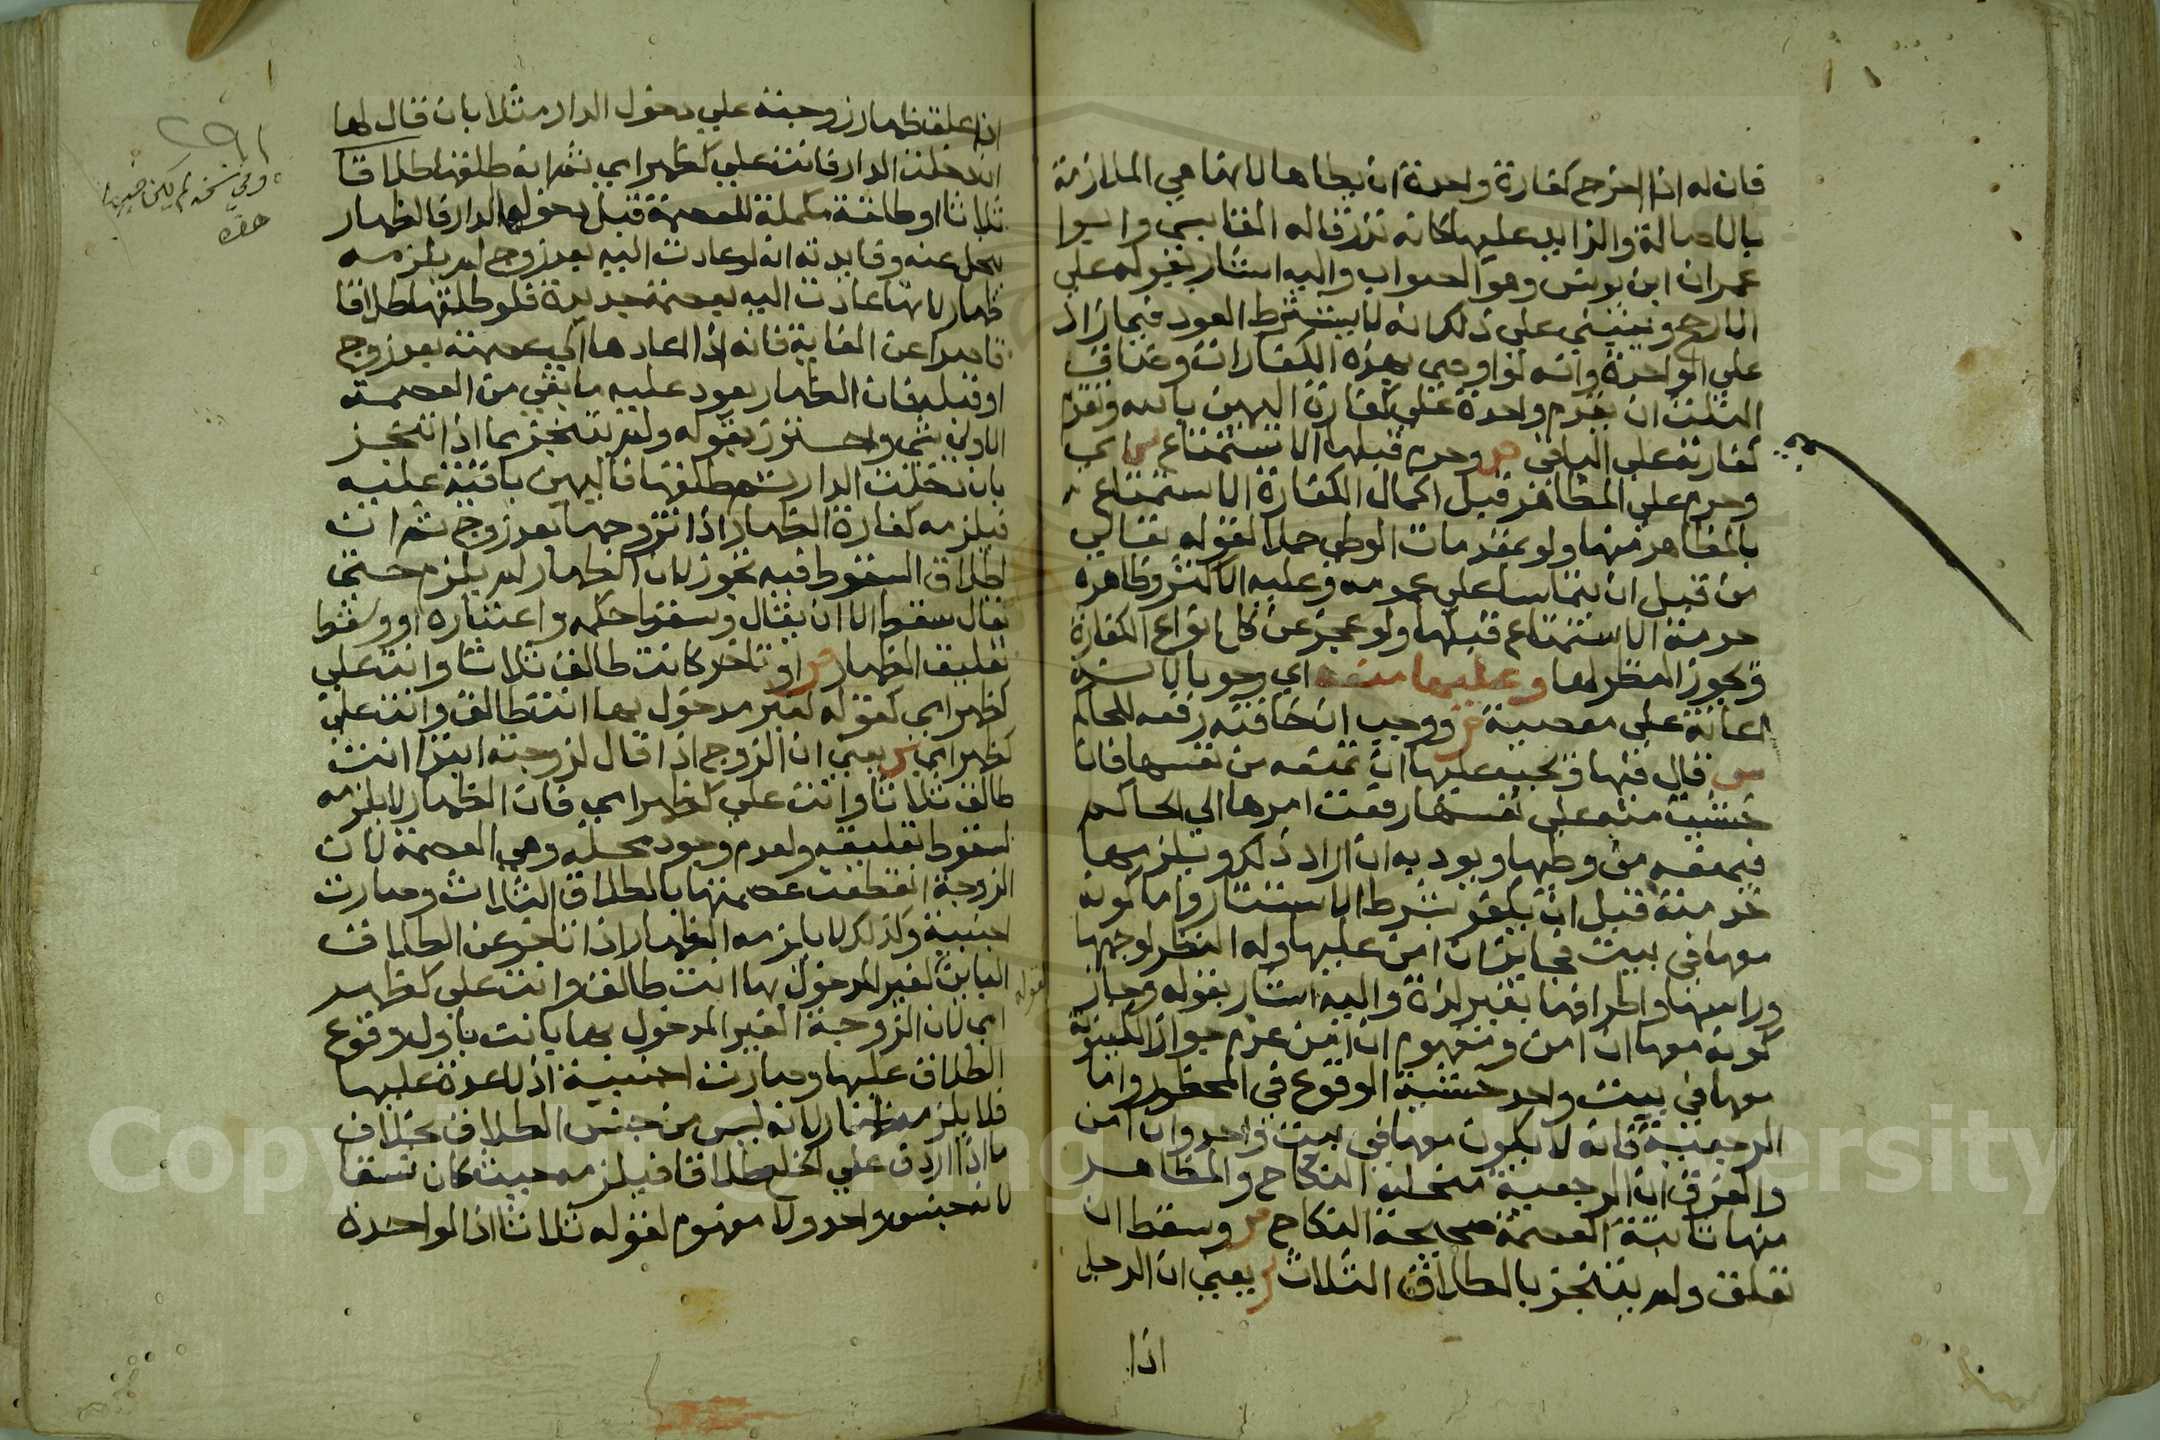 فان له اذا اخرج كفارة واحدة ان يطاها لانها هي الملازمة
بالاصالة والزايد عليها كانه نذر قاله القابسي وابوا
عمران ابن يونس وهو الصواب واليه اشار بقوله علي
الارجح وينبني علي ذلك انه لا يشترط العود فيما زاد
علي الواحدة وانه لو اوصي بهذه الكفارات وضاق
الثلث ان يقدم واحدة علي كفارة اليمين بالله وتقدم
كفارته علي الباقي ص وحرم قبلها الاستمتاع ش اي
وحرم علي المظاهر قبل اكمال الكفارة الاستمتاع
بالمظاهر منها ولو بمقدمات الوطي حملا لقوله تعالي
من قبل ان يتماسا علي عمومه وعليه الاكثر وظاهره
حرمة الاستمتاع قبلها ولو عجز عن كل انواع الكفارة
ويجوز النظر لها وعليها منعه اي وجوبا لانه
اعانة علي معصية ص ووجب ان خافته رفعه للحاكم
ش قال فيها ويجب عليها ان تمنعه من نفسها فان
خشيت منه علي نفسها رفعت امرها الي الحاكم
فيمنعه من وطيها ويودبه ان اراد ذلك ويلزمها
خدمته قبل ان يكفر بشرط الاستتار واما كونه
معها في بيت فجايز ان امن عليها وله النظر لوجهها
وراسها واطرافها بغير لذة واليه اشار بقوله وجاز
كونه معها ان امن ومفهوم ان امن عدم جواز الكينونة
معها في بيت واحد خشية الوقوع في المحظور واما
الرجعية فانه لا يكون معها في بيت واحد وان امن
والفرق ان الرجعية منحلة النكاح والمظاهر
منها ثابتة العصمة صحيحة النكاح ص وسقط ان
تعلق ولم يتنجز بالطلاق الثلاث ش يعني ان الرجل
اذا
ان علق ظهار زوجته علي دخول الدار مثلا بان قال لها
ان دخلت الدار فانت علي كظهر امي ثم انه طلقها طلاقا
ثلاثا او طلقة مكملة للعصمة قبل دخولها الدار فالظهار
ينحل عنه وفايدته انه لو عادت اليه بعد زوج لم يلزمه
ظهار لانها عادت اليه بعصمة جديدة فلو طلقها طلاقا
قاصرا عن الغاية فانه اذا اعادها الي عصمته بعد زوج
او قبله فان الظهار يعود عليه ما بقي من العصمة
الاولي شي واحترز بقوله ولم يتنجز بما اذا تنجز
بان دخلت الدار ثم طلقها فاليمين باقية عليه
فيلزمه كفارة الظهار اذا تزوجها بعد زوج ثم ان
اطلاق السقوط فيه تجوز لان الظهار لم يلزم حتي
يقال سقط الا ان يقال وسقط حكمه واعتباره او وسقط
تعليق الظهار ص او تاخر كانت طالق ثلاثا وانت علي
كظهر امي كقوله لغير مدخول بها انت طالق وانت علي
كظهر امي ش يعني ان الزوج اذا قال لزوجته ابتدا انت
طالق ثلاثا وانت علي كظهر امي فان الظهار لا يلزمه
لسقوط تعليقه ولعدم وجود محله وهي العصمة لان
الزوجة انقطعت عصمتها بالطلاق الثلاث وصارت
اجنبية وكذلك لا يلزمه الظهار اذا تاخر عن الطلاق
الباين لغير المدخول بها انت طالق وانت علي كظهر
كقوله
امي لان الزوجة الغير المدخول بها بانت باول وقوع
الطلاق عليها وصارت اجنبية اذ لا عدة عليها
فلا يلزمه ظهار لانه ليس من جنس الطلاق بخلاف
ما اذا اردف علي الخلع طلاقا فيلزمه حيث كان نسقا
لانه جنس واحد ولا مفهوم لقوله ثلاثا اذ الواحدة
وفي نسخة لم يكن ضيرها
Copy King Saud University